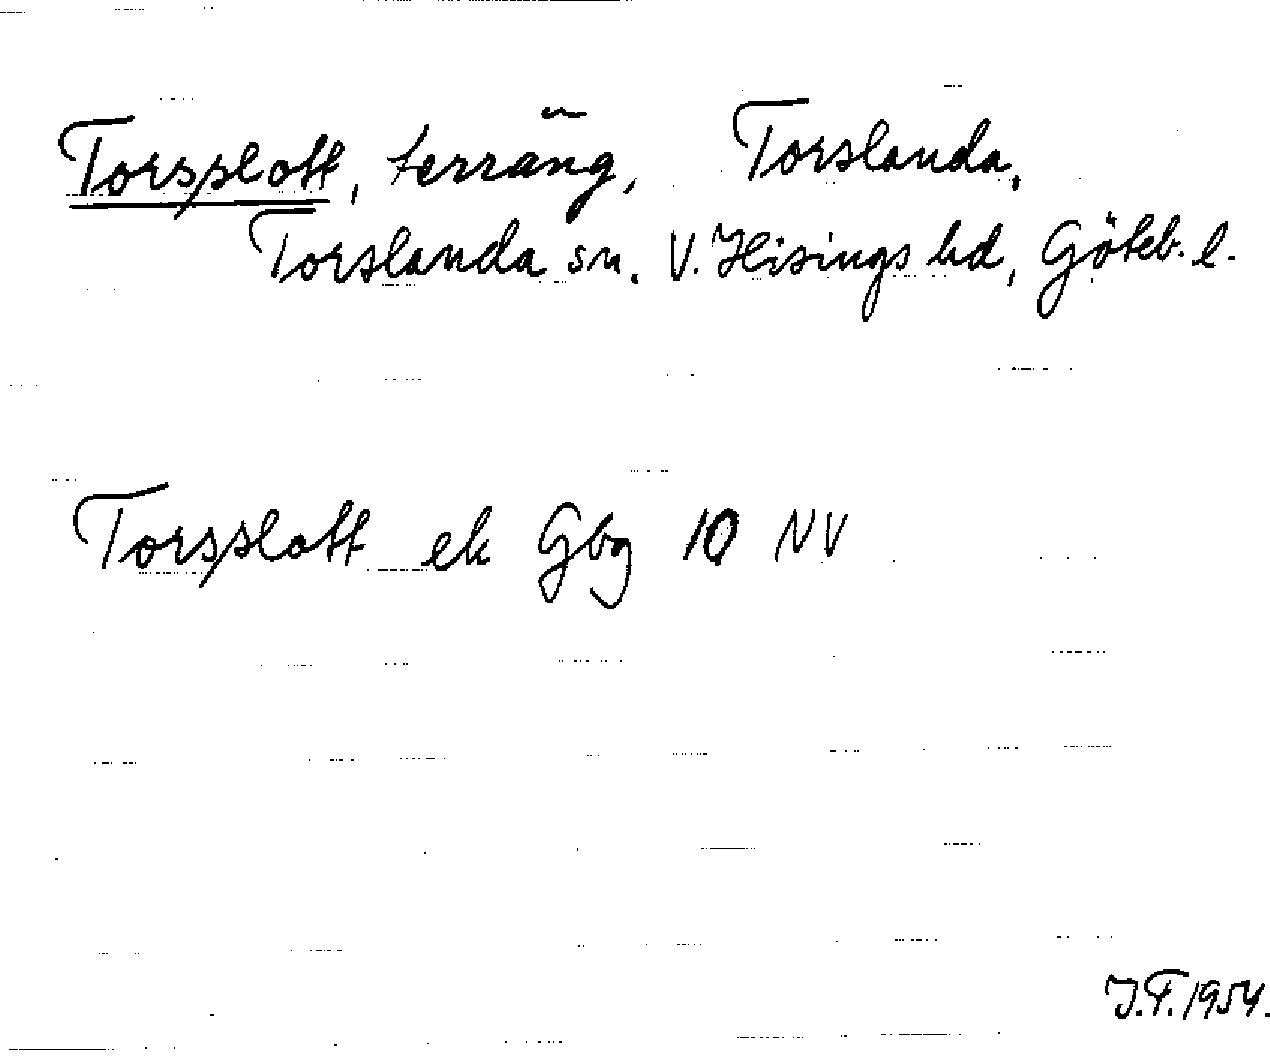 Torsplott, terräng, Torslanda,
Torslanda sn. V. Hisings hd, Göteb. l.
Torsplott ek Gbg 10 NV
J.F. 1954.